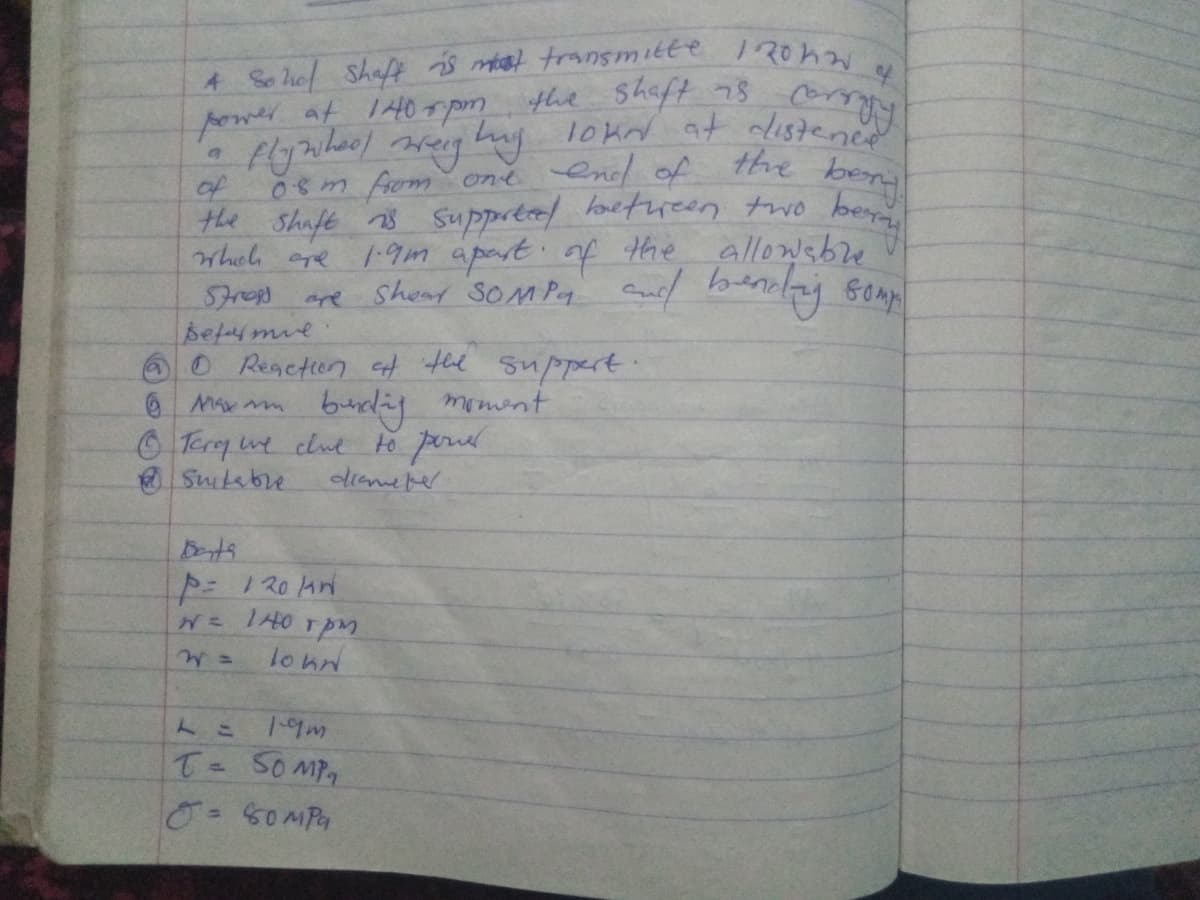 A Solid Shaft is transmitte 120kw of
power at 140rpm the shaft is carrying
a flywheel weighing 10KN at distance
of 0.8m from one end of the
the shaft is supported between two
which are 1.9m apart. if the allowable
Stress are Shear 50MPa and bending 80mpa
Determine.
(a) (i) Reaction at the support.
(b) bending moment
(c) Torque due to power
(d) Suitable diameter
Data
P= 120kw
N= 140 rpm
W= 10kN
L= 1.9m
τ= 50MPa
σ= 80MPa